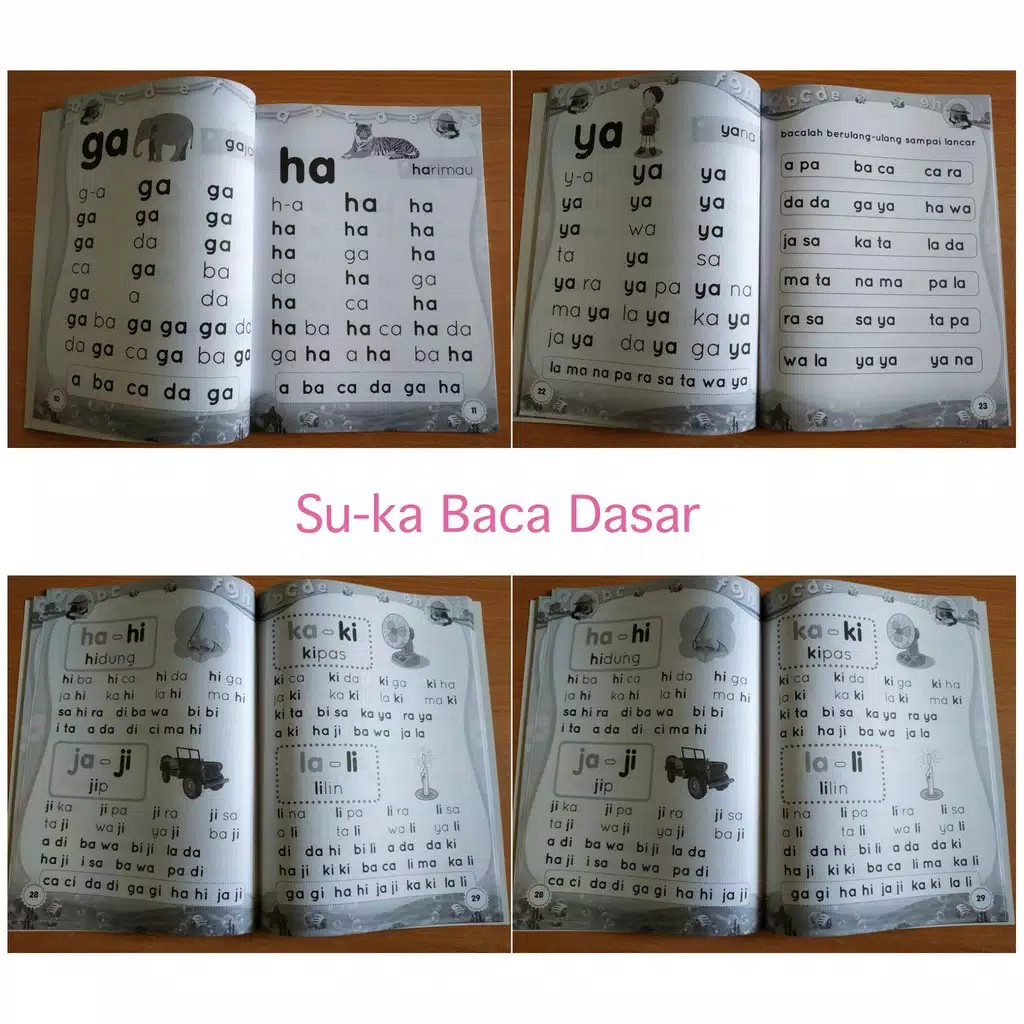 ga
g-a ga ga
ga ga ga
ga da ga
ca ga ba
ga a da
ga ba ga ga ga da
da ga ca ga ba ga
a ba ca da ga
10
ha
harimau
h-a ha ha
ha ha ha
ha ga ha
da ha ga
ha ca ha
ha ba ha ca ha da
ga ha a ha ba ha
a ba ca da ga ha
11
ya
yana
y-a ya ya
ya ya ya
ya wa ya
ta ya sa
ya ra ya pa ya na
ma ya la ya ka ya
ja ya da ya ga ya
la ma na pa ra sa ta wa ya
22
bacalah berulang-ulang sampai lancar
a pa ba ca ca ra
da da ga ya ha wa
ja sa ka ta la da
ma ta na ma pa la
ra sa sa ya ta pa
wa la ya ya ya na
23
Su-ka Baca Dasar
ha - hi
hidung
hi ba hi ca hi da hi ga
ja hi ka hi la hi ma hi
sa hi ra di ba wa bi bi
i ta a da di ci ma hi
ja - ji
jip
ji ka ji pa ji ra ji sa
ta ji wa ji ya ji ba ji
a di ba wa bi ji la da
ha ji i sa ba wa pa di
ca ci da di ga gi ha hi ja ji
28
ka - ki
kipas
ki ca ki da ki ga ki ha
ja ki ka ki la ki ma ki
ki ta bi sa ka ya ra ya
a ki ha ji ba wa ja la
la - li
lilin
li na li pa li ra li sa
a li ta li wa li ya li
di da hi bi li a da da ki
ha ji ki ki ba ca li ma ka li
ga gi ha hi ja ji ka ki la li
29
ha - hi
hidung
hi ba hi ca hi da hi ga
ja hi ka hi la hi ma hi
sa hi ra di ba wa bi bi
i ta a da di ci ma hi
ja - ji
jip
ji ka ji pa ji ra ji sa
ta ji wa ji ya ji ba ji
a di ba wa bi ji la da
ha ji i sa ba wa pa di
ca ci da di ga gi ha hi ja ji
28
ka - ki
kipas
ki ca ki da ki ga ki ha
ja ki ka ki la ki ma ki
ki ta bi sa ka ya ra ya
a ki ha ji ba wa ja la
la - li
lilin
li na li pa li ra li sa
a li ta li wa li ya li
di da hi bi li a da da ki
ha ji ki ki ba ca li ma ka li
ga gi ha hi ja ji ka ki la li
29